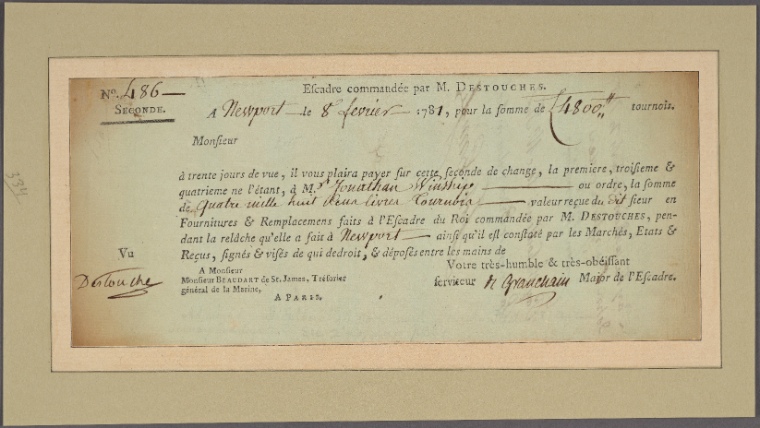 Nº. 486 Escadre commandée par M. DESTOUCHES.
SECONDE.
A Newport le 8 fevrier 1781, pour la somme de 4800 tournois.
Monsieur
à trente jours de vue, il vous plaira payer sur cette seconde de change, la premiere, troisieme &
quatrieme ne l'étant, à M.r Jonathan ou ordre, la somme
de Quatre mille huit livres Tournois valeur reçue du dit sieur en
Fournitures & Remplacemens faits à l'Escadre du Roi commandée par M. DESTOUCHES, pen-
dant la relâche qu'elle a fait à Newport ainsi qu'il est constaté par les Marchés, Etats &
Reçus, signés & visés de qui de droit, & déposés entre les mains de
Vu
Votre très-humble & très-obéissant
Destouche
A Monsieur
Monsieur BEAUDART de St. James, Trésorier
général de la Marine,
A PARIS.
serviteur de Granchain Major de l'Escadre.
334